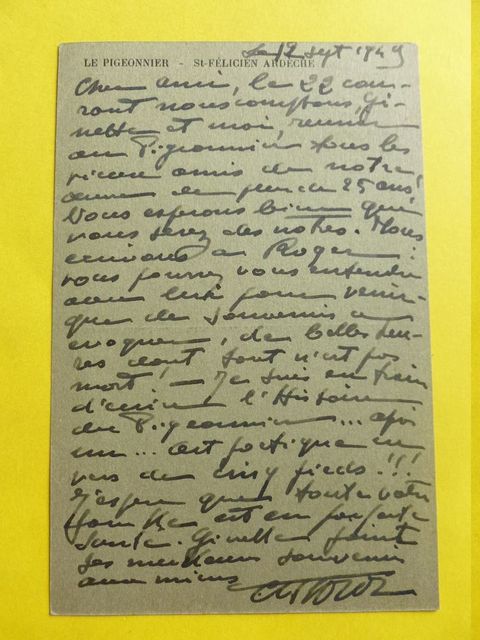 Le 12 sept 1949
LE PIGEONNIER - St-FÉLICIEN ARDÈCHE
Cher ami, le 22 cou-
rant nous comptons, Gi-
nette et moi, réunir
au Pigeonnier tous les
vieux amis de notre
œuvre de plus de 25 ans!
Nous espérons bien que
vous serez des nôtres. Nous
écrivons à Roger:
vous pourrez vous entendre
avec lui pour venir.
que de souvenirs à
évoquer, de belles heu-
res dont tout n'est pas
mort! — Je suis en train
d'écrire l'Histoire
du Pigeonnier...
un... art poétique en
vers de cinq pieds!!!
J'espère que toute votre
famille est en parfaite
santé. Ginette joint
ses meilleurs souvenirs
aux miens